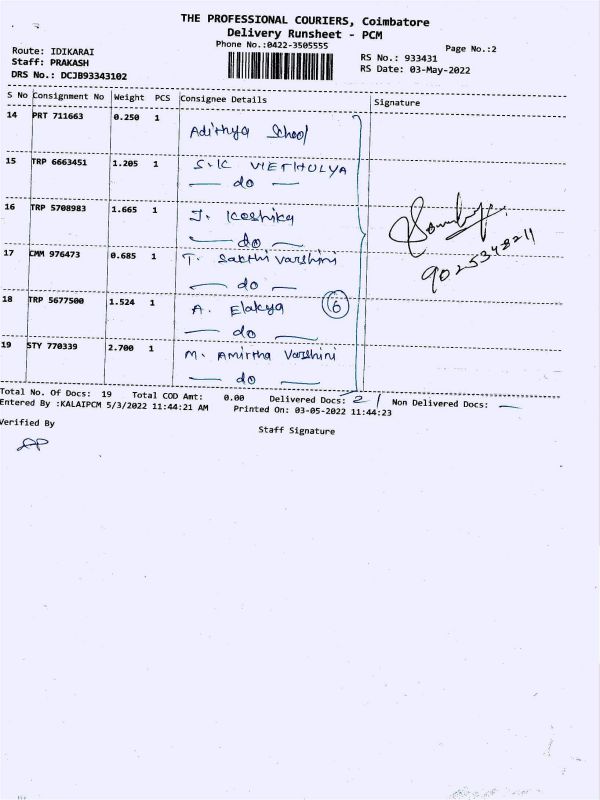 THE PROFESSIONAL COURIERS, Coimbatore
Delivery Runsheet - PCM
Phone No.:0422-3505555
Page No.:2
Route: IDIKARAI
Staff: PRAKASH
DRS No.: DCJB93343102
RS No.: 933431
RS Date: 03-May-2022
S No Consignment No Weight PCS Consignee Details Signature
14 PRT 711663 0.250 1 Adithya School
15 TRP 6663451 1.205 1 S.K
— do —
16 TRP 5708983 1.665 1 J. Koshika
— do —
17 CMM 976473 0.685 1 T. Sakthi Varshini
— do —
9025348211
18 TRP 5677500 1.524 1 A. Elakya 6
— do —
19 STY 770339 2.700 1 M. Amirtha Varshini
— do —
Total No. Of Docs: 19 Total COD Amt: 0.00 Delivered Docs: 2 Non Delivered Docs: —
Entered By :KALAIPCM 5/3/2022 11:44:21 AM Printed On: 03-05-2022 11:44:23
Verified By
Staff Signature